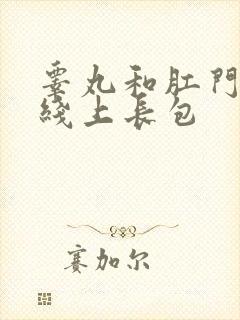 睾丸和肛門
线上長包
赛加尔